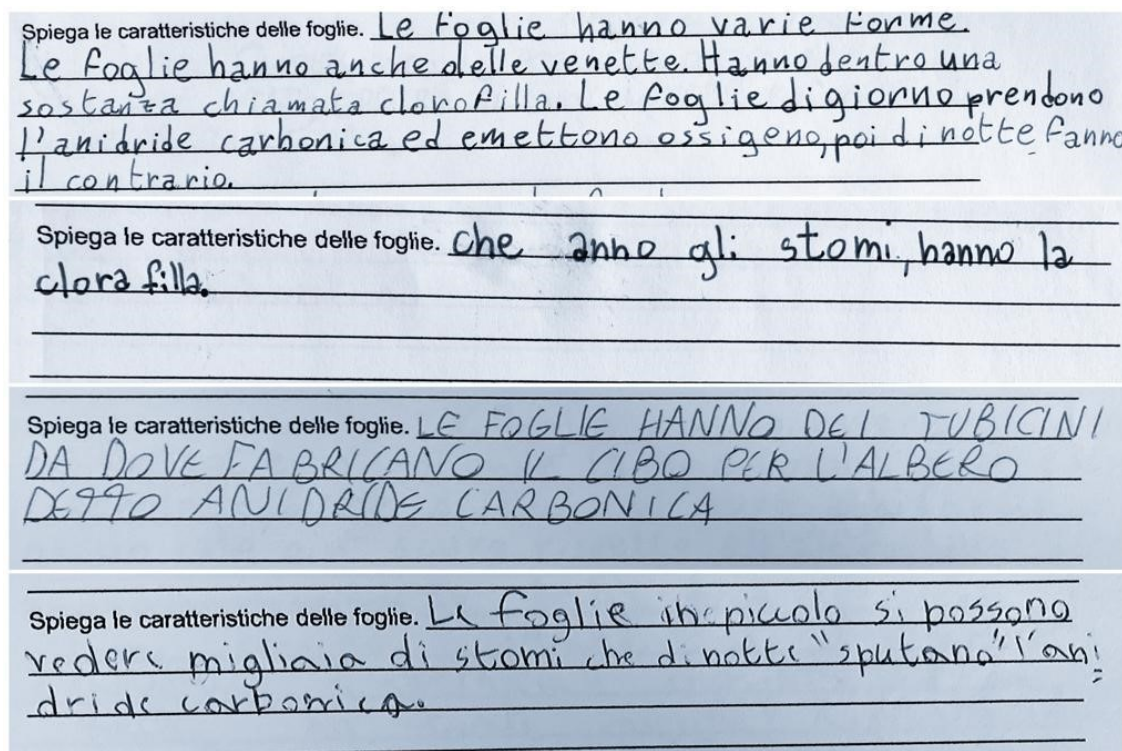 Spiega le caratteristiche delle foglie. Le foglie hanno varie forme.
Le foglie hanno anche delle venette. Hanno dentro una
sostanza chiamata clorofilla. Le foglie di giorno prendono
l'anidride carbonica ed emettono ossigeno, poi di notte fanno
il contrario.
Spiega le caratteristiche delle foglie. Che anno gli stomi, hanno la
clorafilla.
Spiega le caratteristiche delle foglie. LE FOGLIE HANNO DEI TUBICINI
DA DOVE FABRICANO IL CIBO PER L'ALBERO
DETTO ANIDRIDE CARBONICA
Spiega le caratteristiche delle foglie. Le foglie in piccolo si possono
vedere migliaia di stomi che di notte "sputano" l'ani=
dride carbonica.